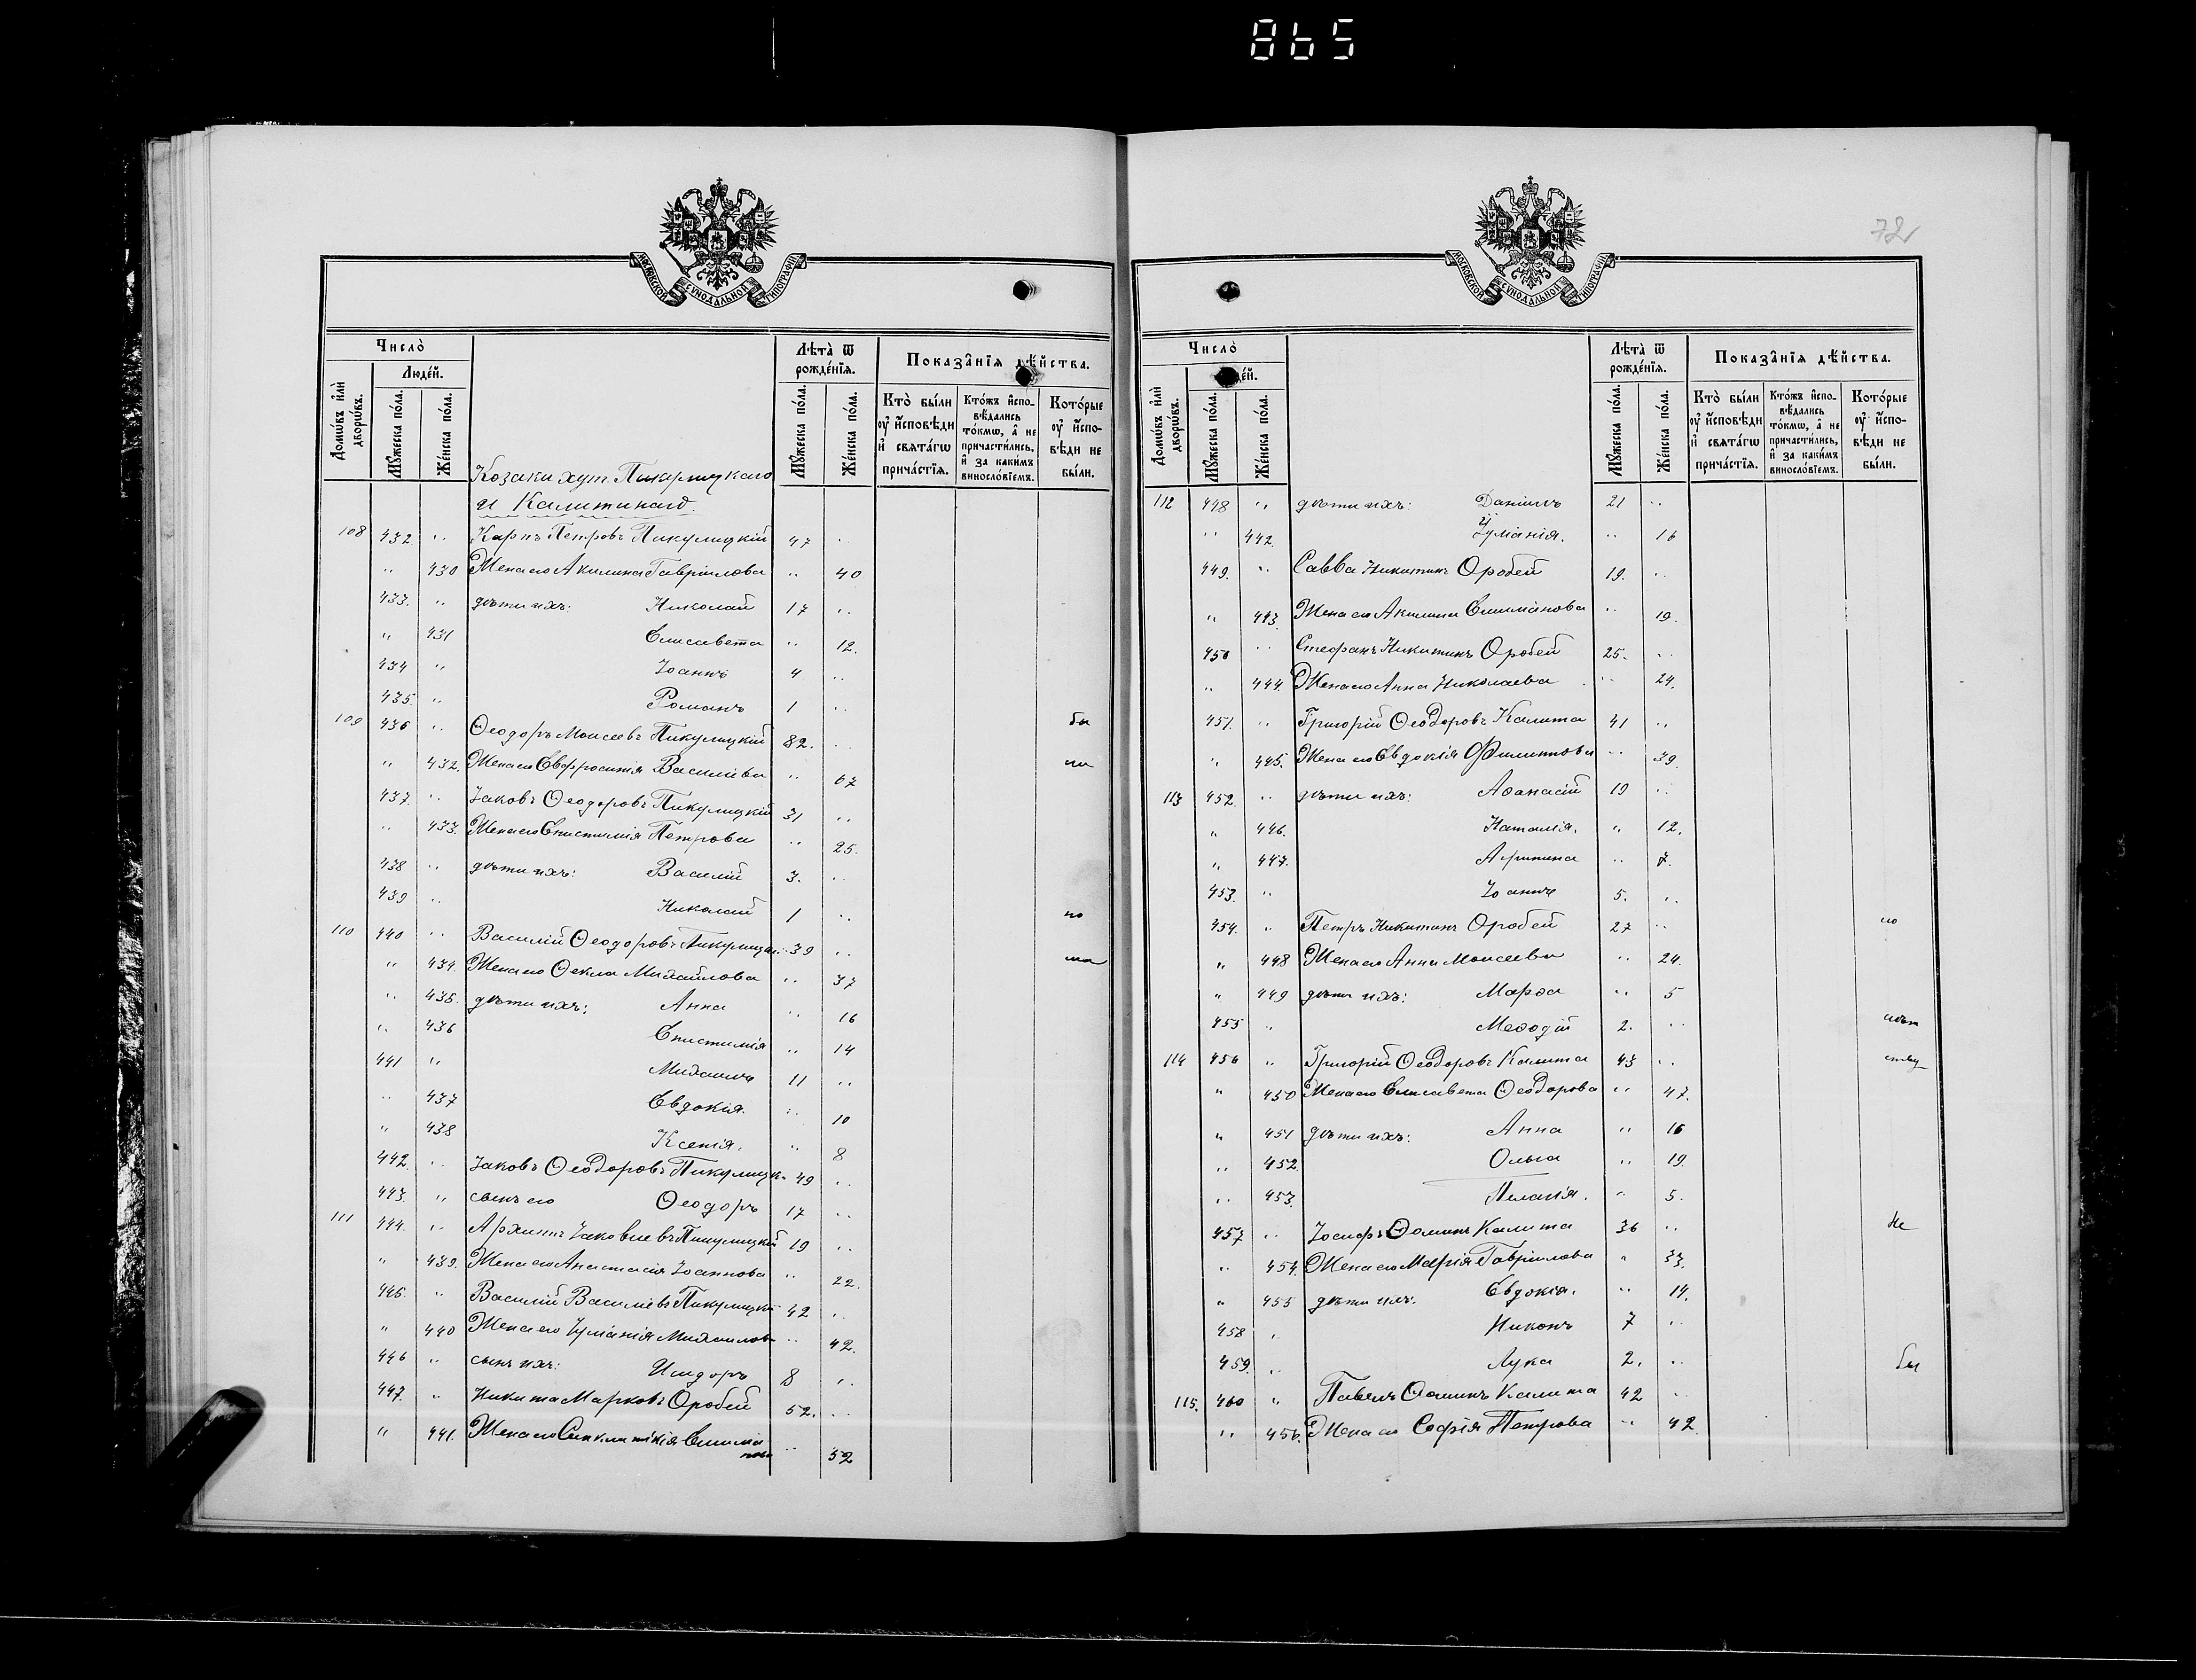 865
72
МОСКОВСКОЙ СУНОДАЛЬНОЙ ТИПОГРАФІИ
МОСКОВСКОЙ СУНОДАЛЬНОЙ ТИПОГРАФІИ
Число̀
Люде́й.
Домѡ́въ и҆лѝ дворѡ́въ.
Мꙋ́жеска по́ла.
Же́нска по́ла.
Лѣ́та ѿ рожде́нїѧ.
Мꙋ́жеска по́ла.
Же́нска по́ла.
Показа̂нїѧ дѣ́йства.
Кто̀ бы́ли ᲂу҆ и҆́сповѣди и҆ свѧта́гѡ прича́стїѧ.
Кто́жъ и҆спо-вѣ́дались то́кмѡ, а҆ не причасти́лись, и҆ за каки́мъ виносло́вїемъ.
Кото́рые ᲂу҆ и҆́спо-вѣди не бы́ли.
Козаки хут. Пикулицкаго
и Калитинаго.
108 432 " Карпъ Петровъ Пикулицкій 47 "
" 430 Жена его Акилина Гавріилова " 40
433. " дѣти ихъ: Николай 17 "
" 431 Елисавета " 12.
434 " Іоаннъ 4 "
435 " Романъ 1 "
109 436 " Ѳеодоръ Моисеевъ Пикулицкій 82. " бы
" 432. Жена его Евфросинія Василіева " 67 ли
437. " Іаковъ Ѳеодоровъ Пикулицкій 31 "
" 433. Жена его Епистимія Петрова " 25.
438 " дѣти ихъ: Василій 3. "
439 " Николай 1 " по
110 440 " Василій Ѳеодоровъ Пикулицкі 39 "
" 434. Жена его Ѳекла Михайлова " 37
" 435. дѣти ихъ: Анна " 16
" 436 Епистимія " 14
441 " Михаилъ 11 "
" 437 Евдокія. " 10
" 438 Ксенія. " 8
442. " Іаковъ Ѳеодоровъ Пикулицк. 49 "
443. " сынъ его Ѳеодоръ 17 "
111 444. " Архипъ Іаковлевъ Пикулицкій 19 "
" 439. Жена его Анастасія Іоаннова " 22.
445. " Василій Василіевъ Пикулицкій 42 "
" 440 Жена его Іуліанія Михаилов " 42.
446 " сынъ ихъ: Исидоръ 8 "
447. " Никита Марковъ Оробей 52. "
" 441. Жена его Синклитикія Емиліа
нова " 52
Число̀
Домѡ́въ и҆лѝ дворѡ́въ.
Мꙋ́жеска по́ла.
Же́нска по́ла.
Лѣ́та ѿ рожде́нїѧ.
Мꙋ́жеска по́ла.
Же́нска по́ла.
Показа̂нїѧ дѣ́йства.
Кто̀ бы́ли ᲂу҆ и҆́сповѣди и҆ свѧта́гѡ прича́стїѧ.
Кто́жъ и҆спо-вѣ́дались то́кмѡ, а҆ не причасти́лись, и҆ за каки́мъ виносло́вїемъ.
Кото́рые ᲂу҆ и҆́спо-вѣди не бы́ли.
112 448 " дѣти ихъ: Даніилъ 21 "
" 442. Іуліанія. " 16
449. " Савва Никитинъ Оробей 19. "
" 443. Жена его Акилина Емиліанова " 19.
450 " Стефанъ Никитинъ Оробей 25. "
" 444. Жена его Анна Николаева " 24.
451. " Григорій Ѳеодоровъ Калита 41 "
" 445. Жена его Евдокія Филиппова " 39.
113 452. " дѣти ихъ: Аѳанасій 19 "
" 446. Наталія. " 12.
" 447. Агрипина " 7.
453. " Іоаннъ 5. "
454. " Петръ Никитинъ Оробей 27 " по
" 448 Жена его Анна Моисеева " 24.
" 449 дѣти ихъ: Марѳа " 5
455 " Меѳодій 2. "
114 456 " Григорій Ѳеодоровъ Калита 43 "
" 450 Жена его Елисавета Ѳеодорова " 47.
" 451 дѣти ихъ: Анна " 16
" 452 Ольга " 19.
" 453. Пелагія. " 5.
457 " Іосифъ Ѳоминъ Калита 36 " Не
" 454. Жена его Марія Гавріилова " 33.
" 455 дѣти ихъ: Евдокія. " 14.
458 " Никонъ 7 "
459. " Лука 2. " бы
115. 460 " Павелъ Ѳоминъ Калита 42 "
" 456. Жена его Софія Петрова " 42